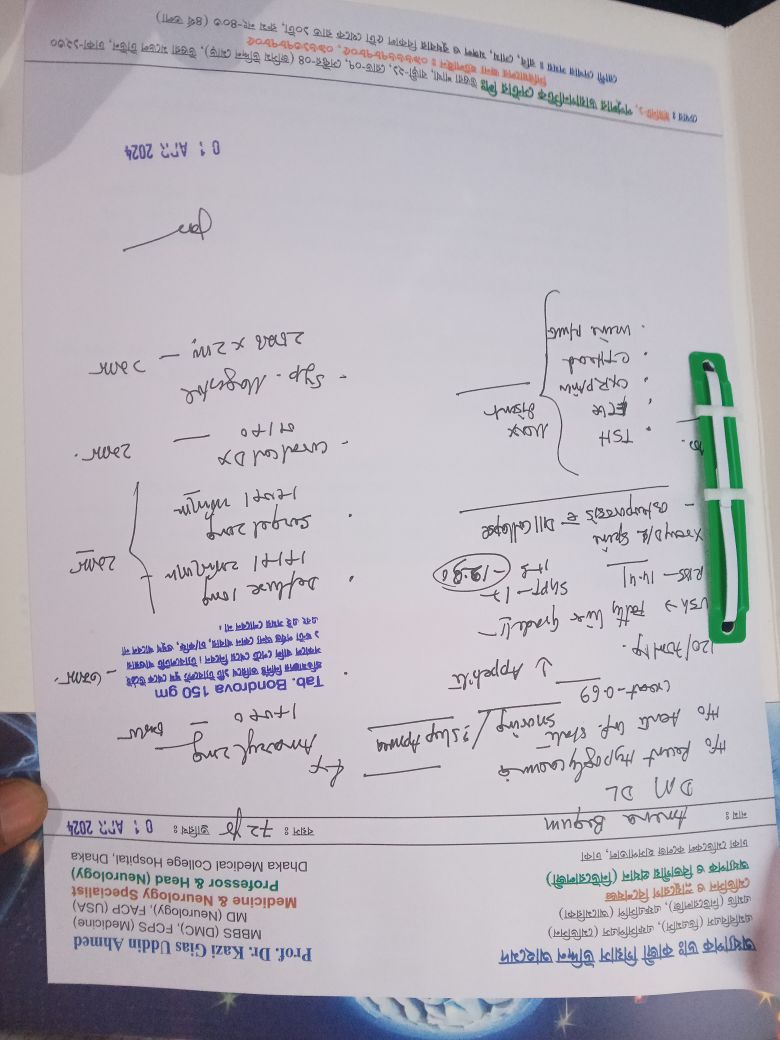 অধ্যাপক ডাঃ কাজী গিয়াস উদ্দিন আহমেদ
এমবিবিএস (ডিএমসি), এফসিপিএস (মেডিসিন)
এমডি (নিউরোলজি), এফএসিপি (আমেরিকা)
মেডিসিন ও স্নায়ুরোগ বিশেষজ্ঞ
অধ্যাপক ও বিভাগীয় প্রধান (নিউরোলজী)
ঢাকা মেডিকেল কলেজ হাসপাতাল, ঢাকা
Prof. Dr. Kazi Gias Uddin Ahmed
MBBS (DMC), FCPS (Medicine)
MD (Neurology), FACP (USA)
Medicine & Neurology Specialist
Professor & Head (Neurology)
Dhaka Medical College Hospital, Dhaka
নাম : Amena Begum বয়স : 72 yr তারিখ : 01 APR 2024
DM DL
H/o Recent Hypoglycaemia
H/o Acute Conf. State
Snoring / ? Sleep Apnoea
Creat - 0.69
↓ Appetite
120/70
USG → Fatty liver Grade II
RBS - 14.41
SGPT - 17
- 12.30
Xray D/L Spine
- Osteoporosis c̄ D11 Collapse
. TSH
. ECG
. CXR P/A view
. CT Head
. Urine R/M/E
Max
disent
Rx
Amaryl 2mg
1+0+0
. Tab. Bondrova 150 gm
প্রতিমাসের নির্দিষ্ট তারিখে ১টি ট্যাবলেট ঘুম থেকে উঠেই
সকালে খালি পেটে খেয়ে নিবেন। ট্যাবলেটটি খাওয়ার
১ ঘন্টা পর্যন্ত অন্য কোন খাবার, চা/কফি, ওষুধ খাবেন না
এবং এই সময় শোবেন না।
- ৩মাস
. Deflux 10mg
1+1+1
. Sergel 20mg
1+0+1
২মাস
- Coralcal DX
0+1+0 — ২মাস
- Syp. Magestol
২চামচ × ২বার — ১মাস
01 APR 2024
চেম্বার : ইউনিট-১, পপুলার ডায়াগনস্টিক সেন্টার লিঃ উত্তরা শাখা, বাড়ী-২১, রোড-০৭, সেক্টর-০৪ (জসিম উদ্দিন মোড়), উত্তরা মডেল টাউন, ঢাকা-১২৩০
সিরিয়ালের জন্য হটলাইন : ০৯৬৬৬৭৮৭৮০৫, ০৯৬১৩৭৮৭৮০৫
রোগী দেখার সময় : রবি, সোম, মঙ্গল ও বুধবার বিকাল ৫টা থেকে রাত ১০টা, রুম নং-৪০৩ (৪র্থ তলা)